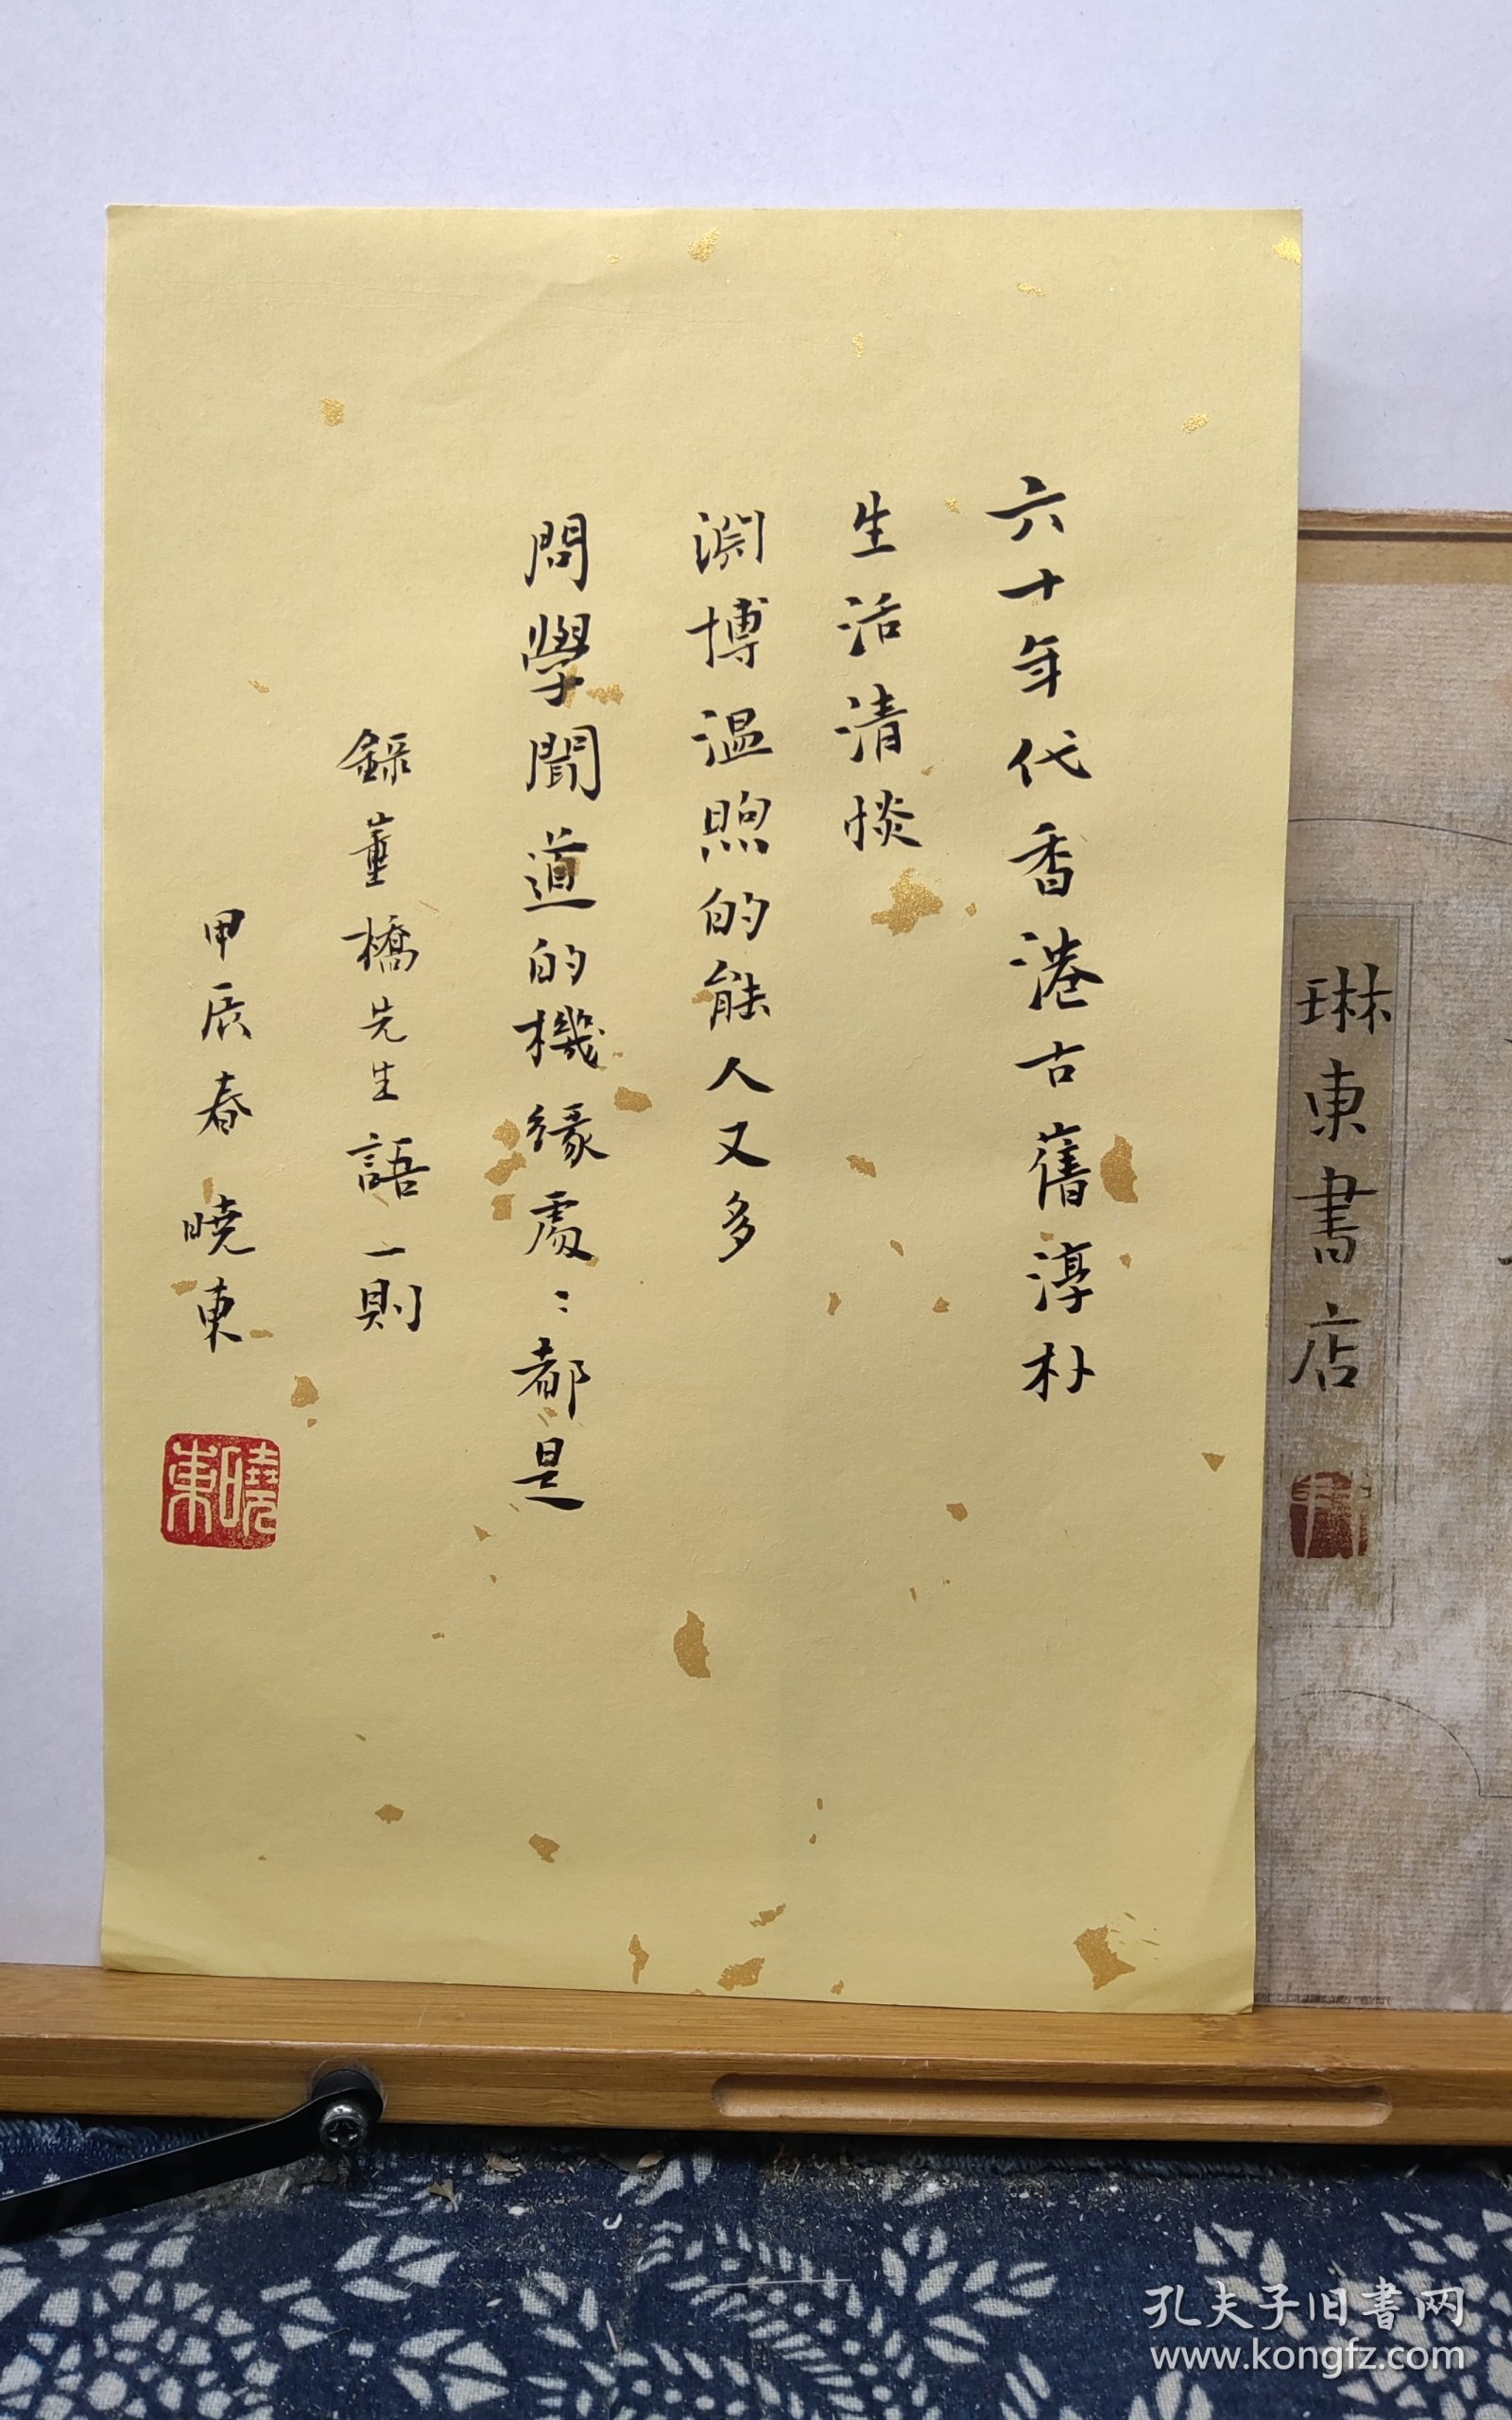 六十年代香港古舊淳朴
生活清惔
渊博温煦的能人又多
問學聞道的機緣處:都是
錄董橋先生語一則
甲辰春 曉東
曉東
琳東書店
孔夫子旧書网
www.kongfz.com